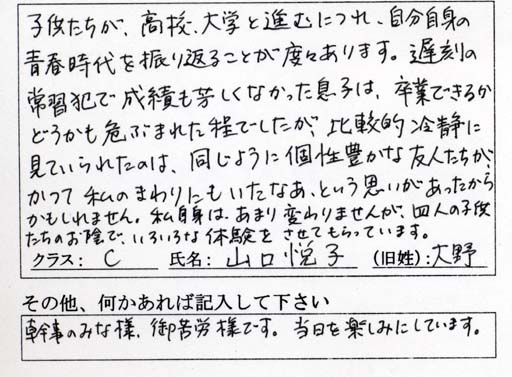 子供たちが、高校、大学と進むにつれ、自分自身の
青春時代を振り返ることが度々あります。遅刻の
常習犯で成績も芳しくなかった息子は、卒業できるか
どうかも危ぶまれた程でしたが、比較的冷静に
見ていられたのは、同じように個性豊かな友人たちが、
かつて私のまわりにもいたなあ、という思いがあったから
かもしれません。私自身は、あまり変わりませんが、四人の子供
たちのお陰で、いろいろな体験をさせてもらっています。
クラス: C 氏名: 山口悦子 (旧姓): 大野
その他、何かあれば記入して下さい
幹事のみな様、御苦労様です。当日を楽しみにしています。